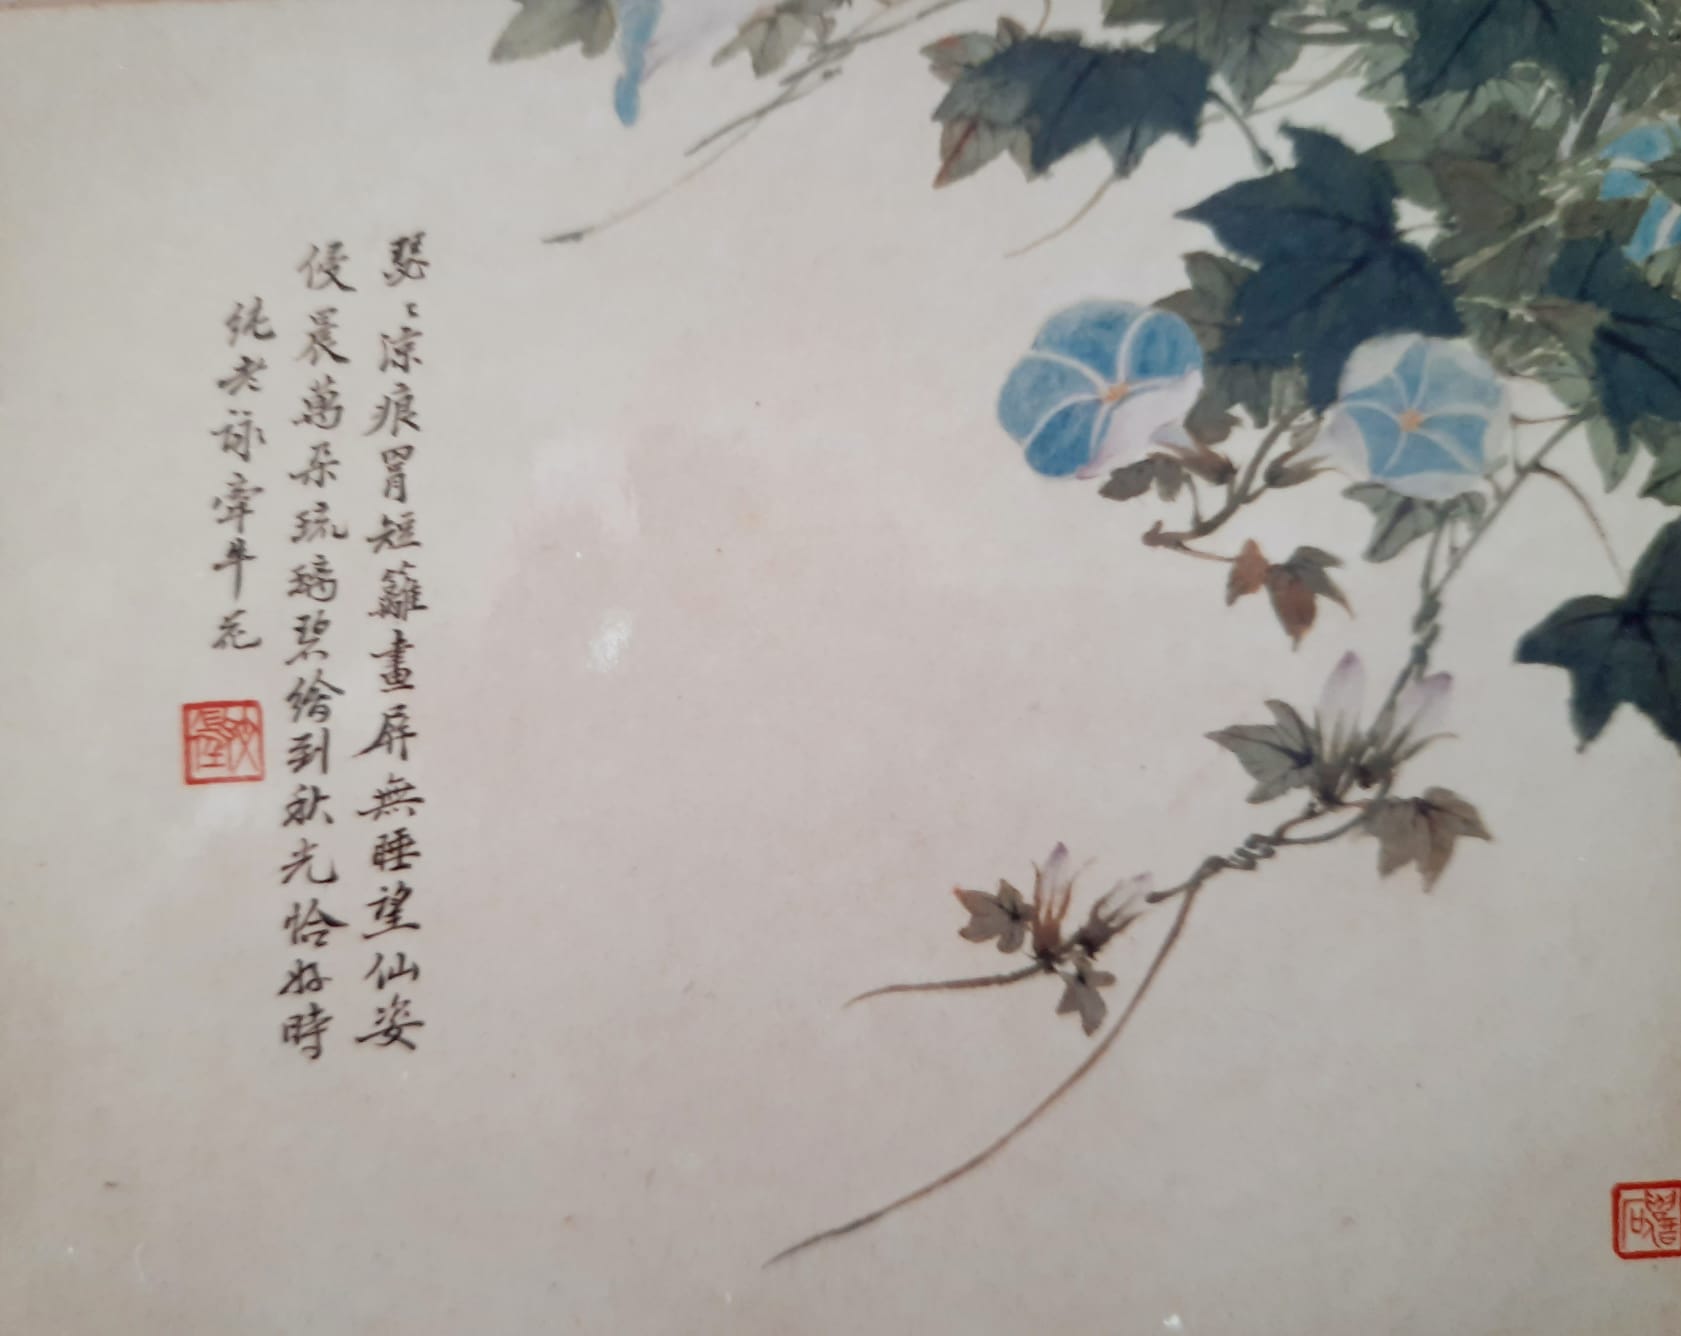 瑟〻涼痕胃短籬畫屏無睡望仙姿
侵晨萬朵琉璃碧繪到秋光恰好時
純老詠牽牛花